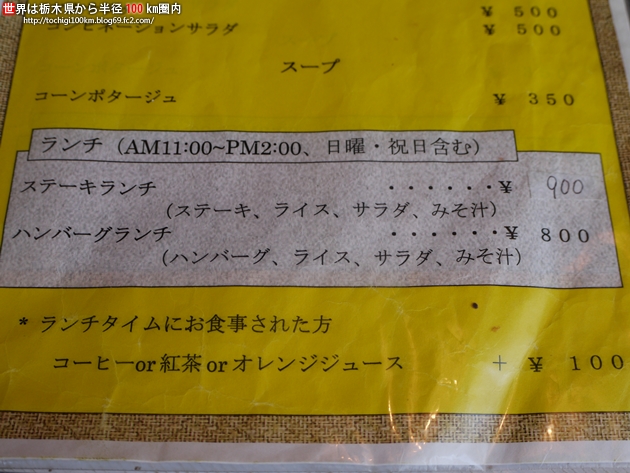 世界は栃木県から半径100km圏内
http://tochigi100km.blog69.fc2.com/
¥ 500
コンビネーションサラダ ¥ 500
スープ
コーンポタージュ ¥ 350
ランチ（AM11:00~PM2:00、日曜・祝日含む）
ステーキランチ ・・・・・・¥ 900
（ステーキ、ライス、サラダ、みそ汁）
ハンバーグランチ ・・・・・・¥ 800
（ハンバーグ、ライス、サラダ、みそ汁）
* ランチタイムにお食事された方
コーヒーor 紅茶 or オレンジジュース ＋ ¥ 100